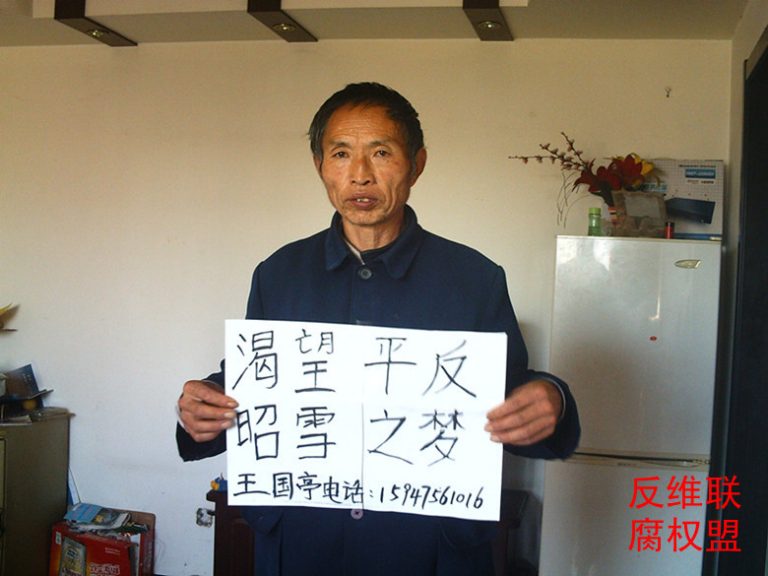 渴望平反
昭雪之梦
王国亭电话:15947561016
反维联
腐权盟